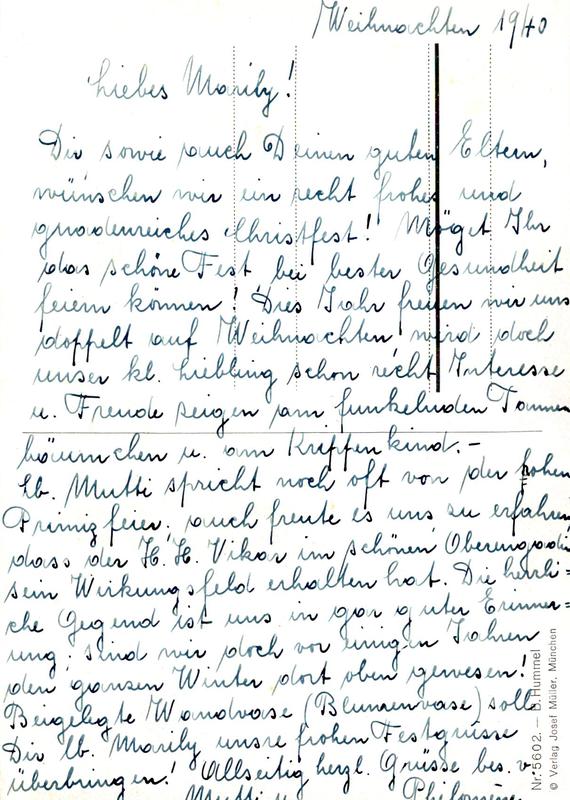 Weihnachten 1940
Liebes Marily!
Dir sowie auch Deinen guten Eltern,
wünschen wir ein recht frohes und
gnadenreiches Christfest! Möget Ihr
das schöne Fest bei bester Gesundheit
feiern können! Dies Jahr freuen wir uns
doppelt auf Weihnachten wird doch
unser kl. Liebling schon recht Interesse
u. Freude zeigen am funkelnden Tannen
bäumchen u. am Krippenkind.-
Lb. Mutti spricht noch oft von der frohen
Primizfeier. auch freute es uns zu erfahren
dass der H. H. Vikar im schönen Oberengadin
sein Wirkungsfeld erhalten hat. Die herrli=
che Gegend ist uns in gar guter Erinner=
ung; sind wir doch vor einigen Jahren
den ganzen Winter dort oben gewesen!
Beigelegte Wandvase (Blumenvase) soll
Dir lb. Marily unsre frohen Festgrüsse
überbringen! Allseitig herzl. Grüsse bes. v.
Mutti u. Philomene
Nr. 5602. — B. Hummel
© Verlag Josef Müller, München